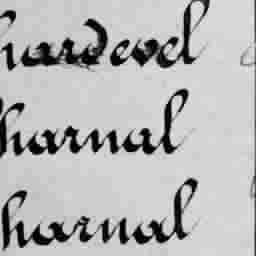 hardevel
harnal
harnal